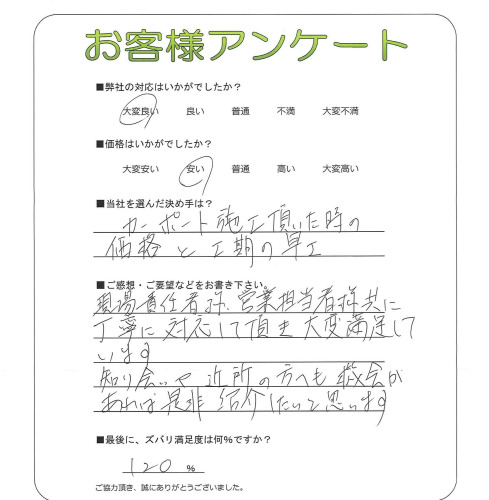 お客様アンケート
■弊社の対応はいかがでしたか？
大変良い 良い 普通 不満 大変不満
■価格はいかがでしたか？
大変安い 安い 普通 高い 大変高い
■当社を選んだ決め手は？
カーポート施工頂いた時の
価格と工期の早工
■ご感想・ご要望などをお書き下さい。
現場責任者様、営業担当者様共に
丁寧に対応して頂き大変満足して
います
知り合いや近所の方へも機会が
あれば是非紹介したいと思います
■最後に、ズバリ満足度は何%ですか？
120 %
ご協力頂き、誠にありがとうございました。